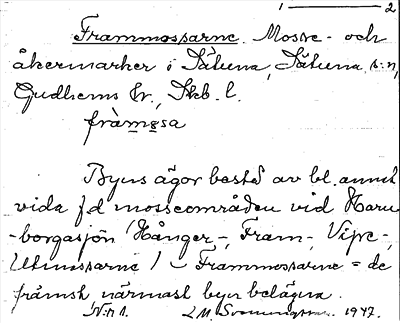 1 — 2
Frammossarne. Mosse- och
åkermarker i Sätuna, Sätuna s:n,
Gudhems hr., Skb. l.
fràmsa
Byns ägor bestå av bl. annat
vida f.d mosseområden vid Horn
-borgasjön (Hånger-, Fram-, Vipe-,
Utmossarne) – Frammossarne = de
främst, närmast byn belägna.
1947.